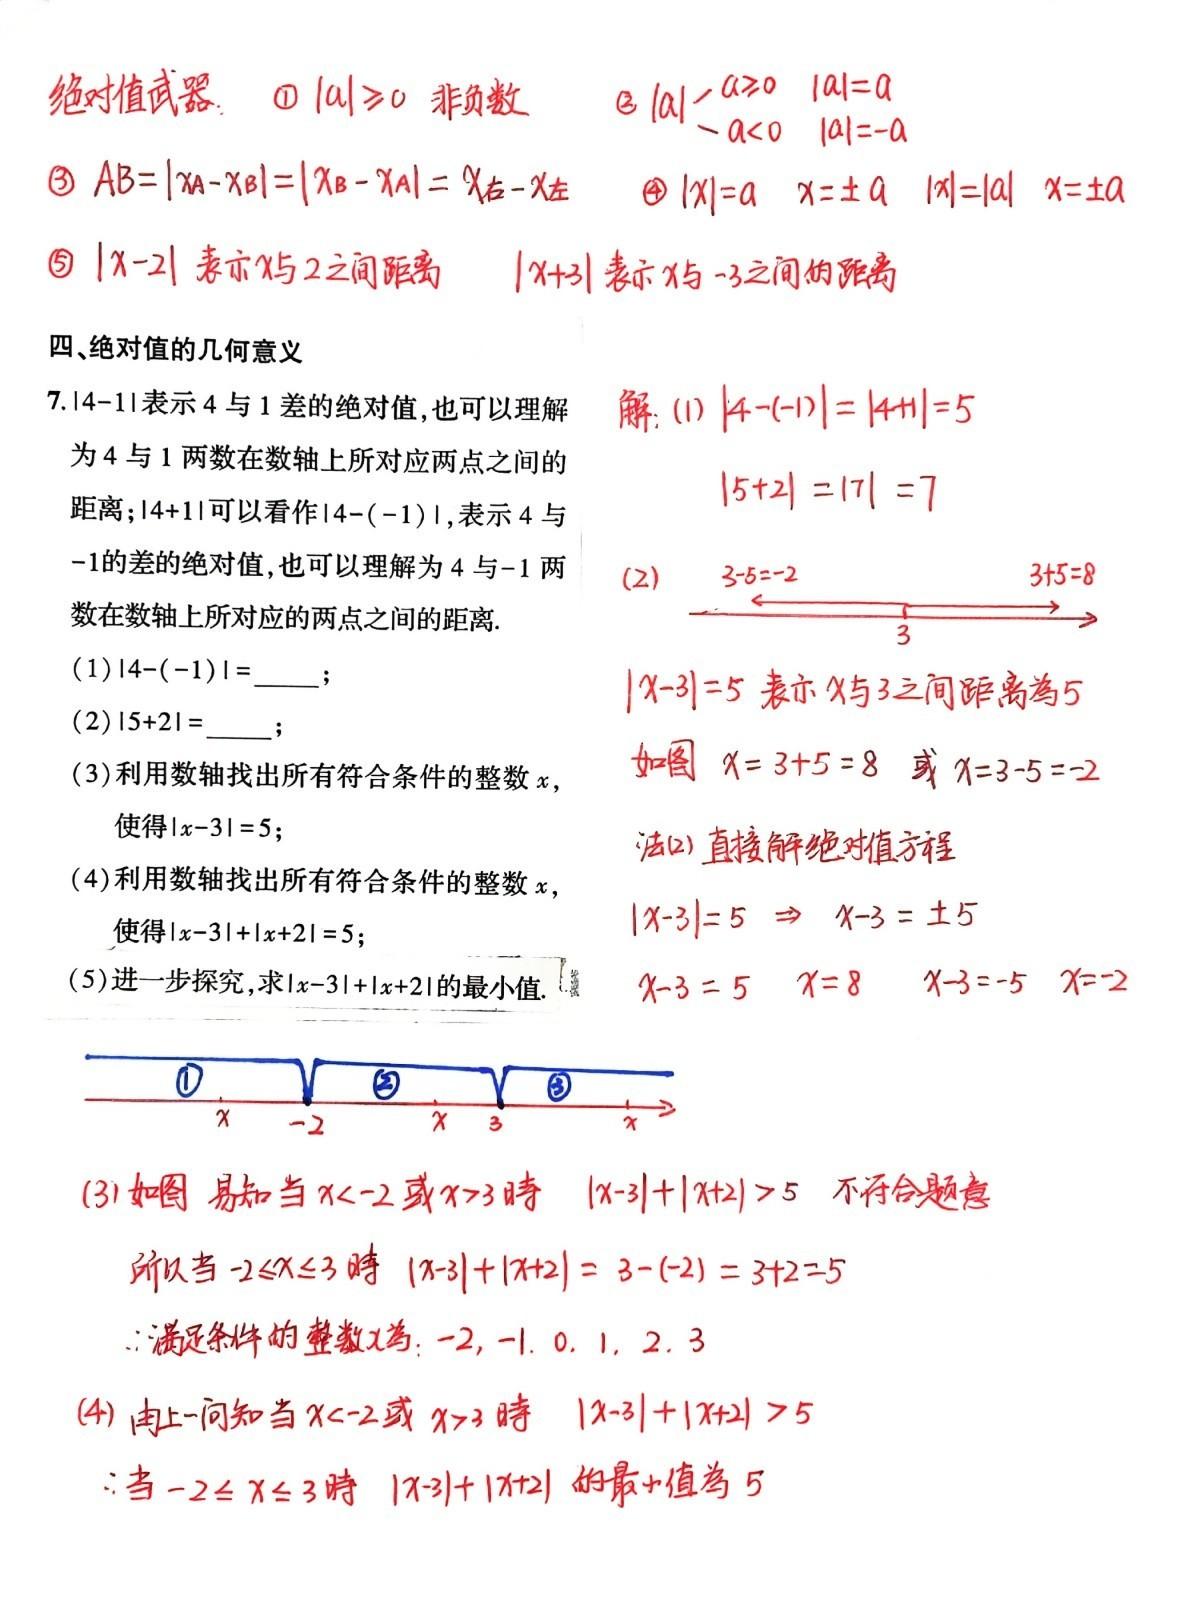 绝对值武器: ① |a|≥0 非负数 ② |a| a≥0 |a|=a
a<0 |a|=-a
③ AB=|xA-xB|=|xB-xA|=x右-x左 ④ |x|=a x=±a |x|=|a| x=±a
⑤ |x-2| 表示x与2之间距离 |x+3| 表示x与-3之间的距离
四、绝对值的几何意义
7.|4-1|表示4与1差的绝对值,也可以理解
为4与1两数在数轴上所对应两点之间的
距离;|4+1|可以看作|4-(-1)|,表示4与
-1的差的绝对值,也可以理解为4与-1两
数在数轴上所对应的两点之间的距离.
(1)|4-(-1)|=_____;
(2)|5+2|=_____;
(3)利用数轴找出所有符合条件的整数x,
使得|x-3|=5;
(4)利用数轴找出所有符合条件的整数x,
使得|x-3|+|x+2|=5;
(5)进一步探究,求|x-3|+|x+2|的最小值.
解: (1) |4-(-1)|=|4+1|=5
|5+2|=|7|=7
(2) 3-5=-2 3+5=8
3
|x-3|=5 表示x与3之间距离為5
如图 x=3+5=8 或 x=3-5=-2
法(2) 直接解绝对值方程
|x-3|=5 ⇒ x-3=±5
x-3=5 x=8 x-3=-5 x=-2
① ② ③
x -2 x 3 x
(3) 如图 易知当x<-2或x>3時 |x-3|+|x+2|>5 不符合题意
所以当-2≤x≤3時 |x-3|+|x+2|=3-(-2)=3+2=5
∴满足条件的整数x為: -2, -1. 0. 1. 2. 3
(4) 由上一问知当x<-2或x>3時 |x-3|+|x+2|>5
∴当-2≤x≤3時 |x-3|+|x+2| 的最小值為5